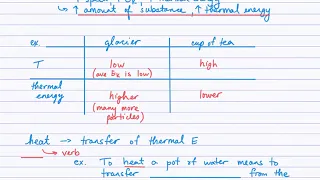 ↳ ↑ amount of substance, ↑ thermal energy
ex. glacier cup of tea
T low high
(ave Ek is low)
thermal energy higher lower
(many more particles)
heat → transfer of thermal E
↳ verb
ex. To heat a pot of water means to
transfer from the